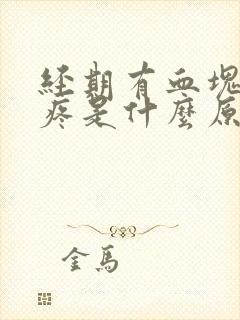 經期有血塊
疼是什麼原
金馬